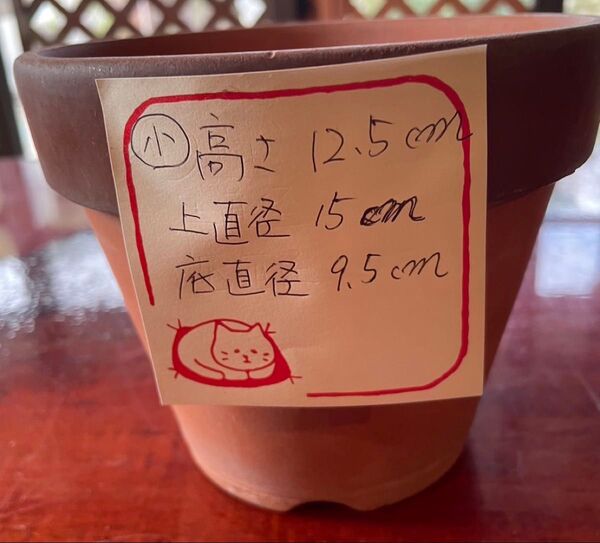 小 高さ 12.5cm
上直径 15cm
底直径 9.5cm